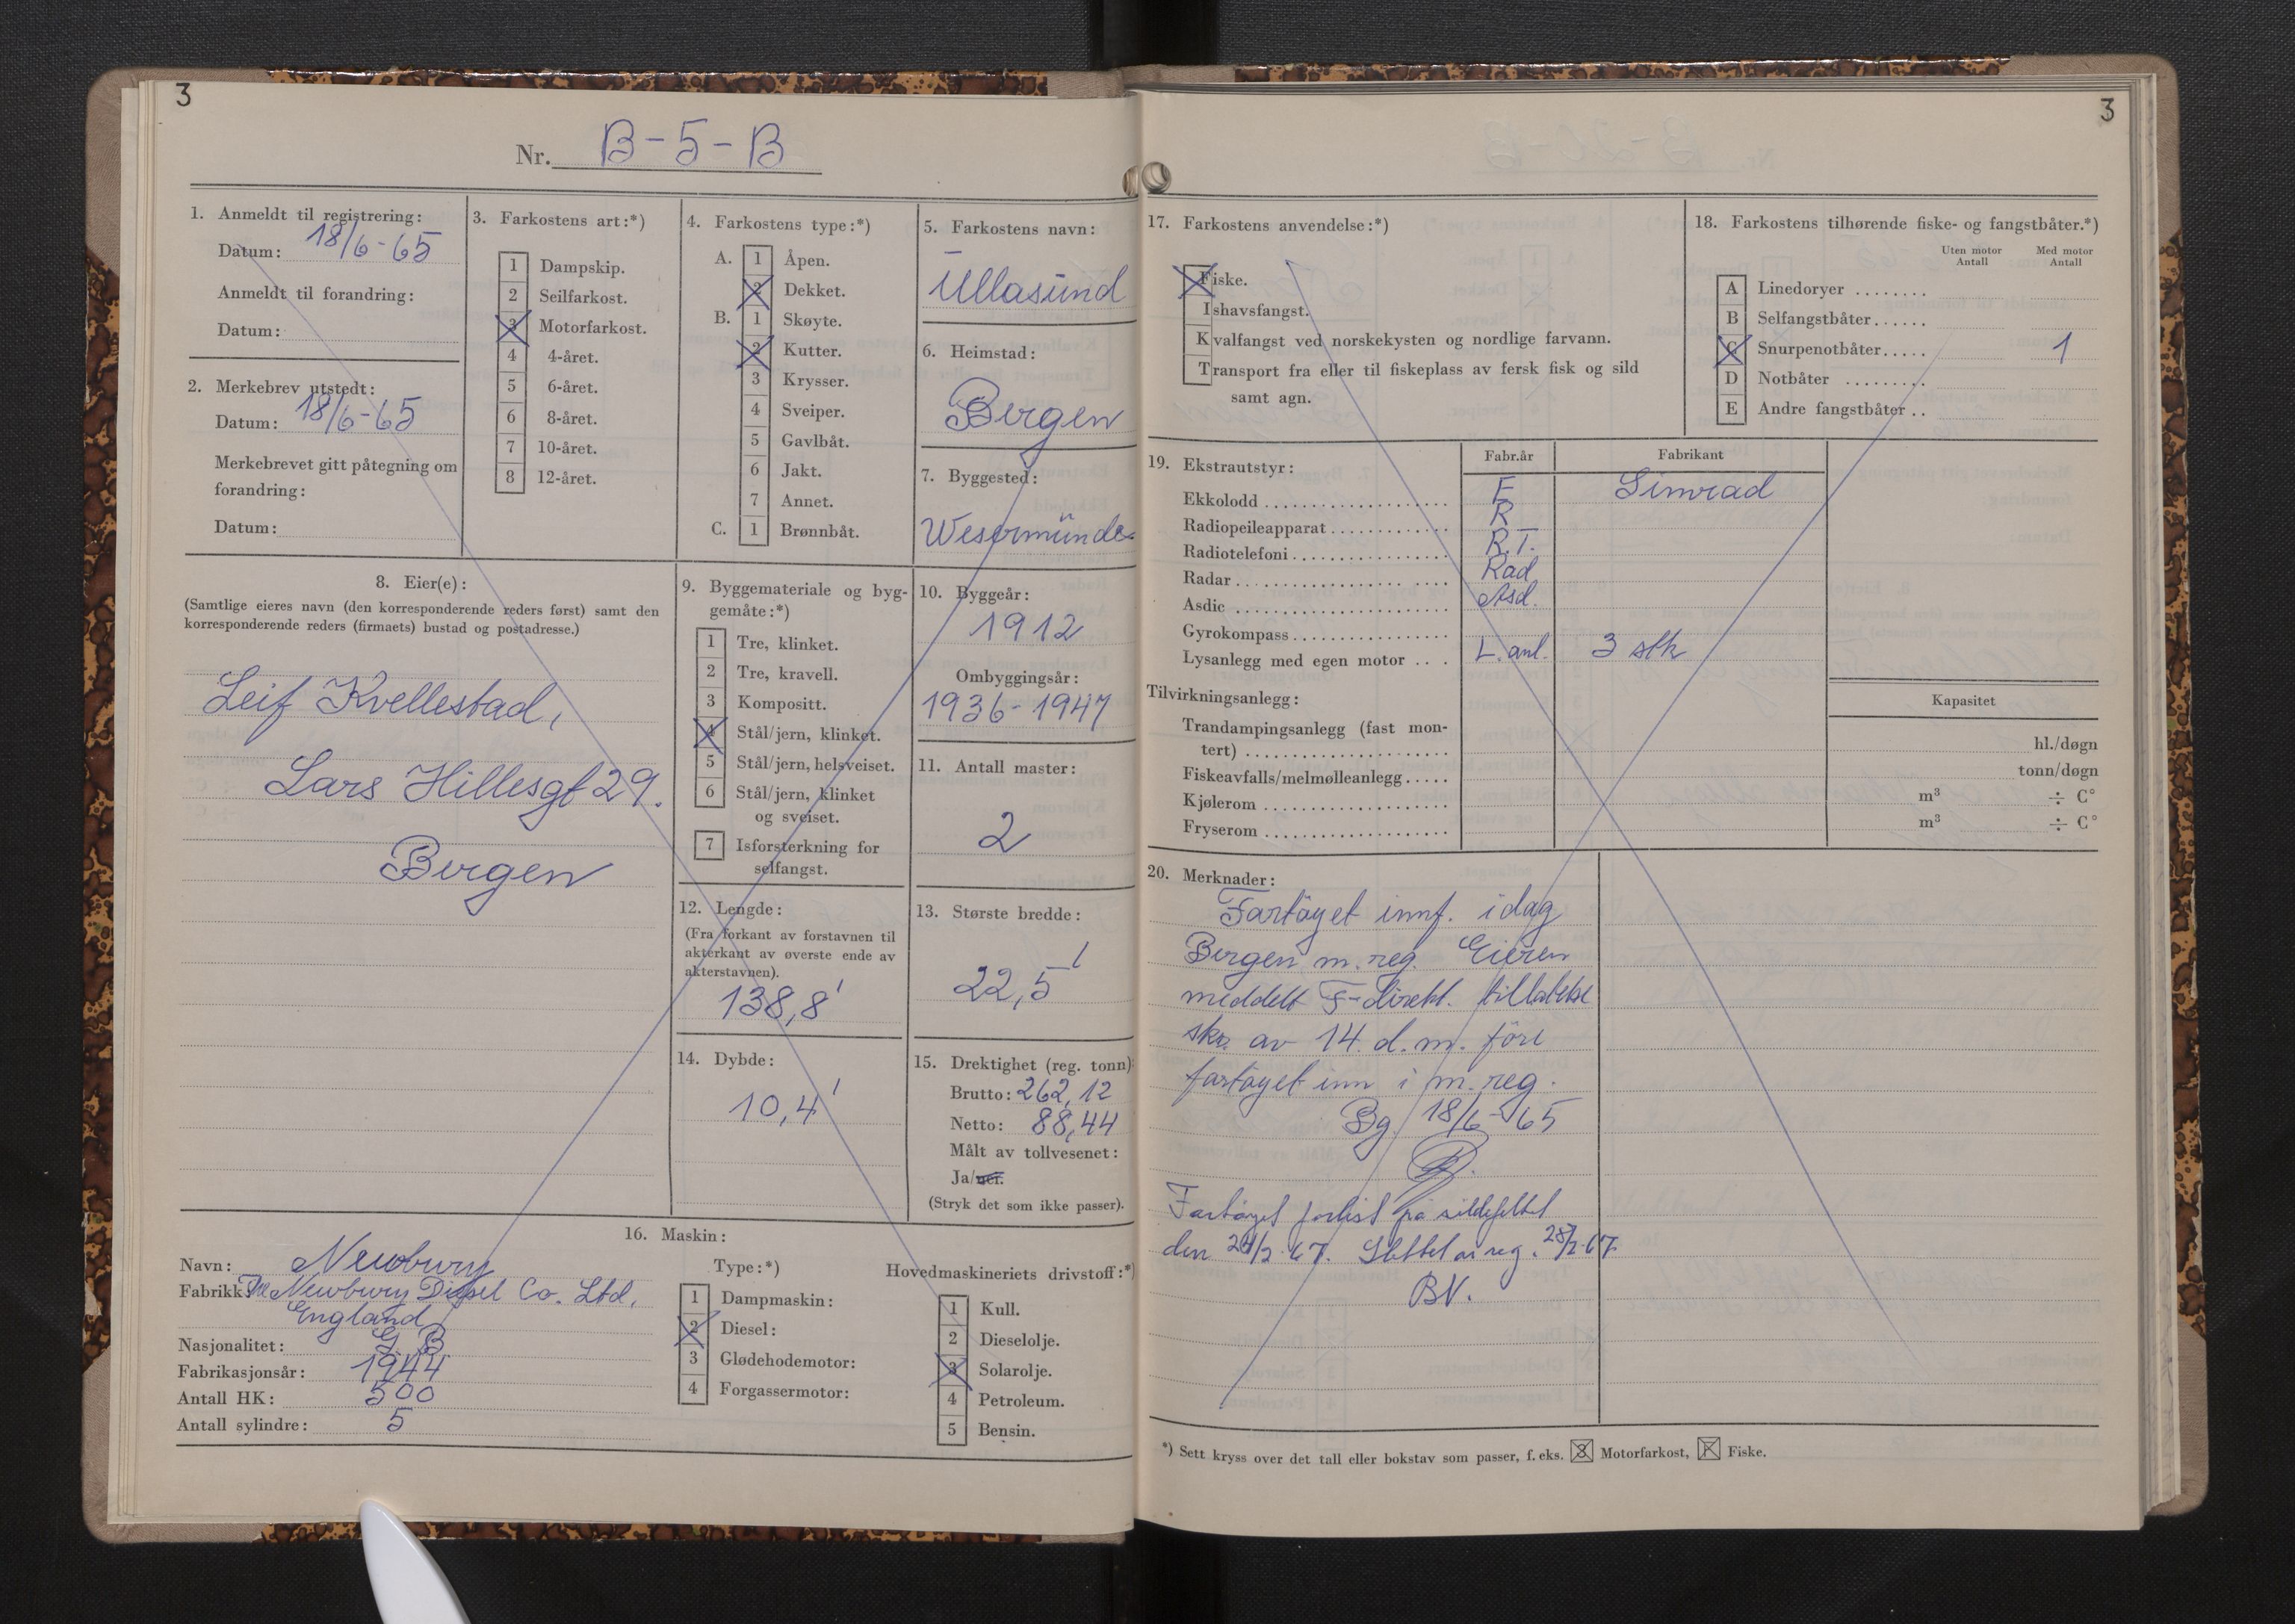 3
Nr. B-5-B
1. Anmeldt til registrering:
Datum: 18/6-65
Anmeldt til forandring:
Datum:
2. Merkebrev utstedt:
Datum: 18/6-65
Merkebrevet gitt påtegning om
forandring:
Datum:
3. Farkostens art:*)
1 Dampskip.
2 Seilfarkost.
3 Motorfarkost.
4 4-året.
5 6-året.
6 8-året.
7 10-året.
8 12-året.
4. Farkostens type:*)
A. 1 Åpen.
2 Dekket.
B. 1 Skøyte.
2 Kutter.
3 Krysser.
4 Sveiper.
5 Gavlbåt.
6 Jakt.
7 Annet.
C. 1 Brønnbåt.
5. Farkostens navn:
Ullasund
6. Heimstad:
Bergen
7. Byggested:
Wesermünde
8. Eier(e):
(Samtlige eieres navn (den korresponderende reders først) samt den
korresponderende reders (firmaets) bustad og postadresse.)
Leif Kvellestad,
Lars Hillesgt 29.
Bergen
9. Byggemateriale og byg-
gemåte:*)
1 Tre, klinket.
2 Tre, kravell.
3 Kompositt.
4 Stål/jern, klinket.
5 Stål/jern, helsveiset.
6 Stål/jern, klinket
og sveiset.
7 Isforsterkning for
selfangst.
10. Byggeår:
1912
Ombyggingsår:
1936-1947
11. Antall master:
2
12. Lengde:
(Fra forkant av forstavnen til
akterkant av øverste ende av
akterstavnen).
138,8'
13. Største bredde:
22,5'
14. Dybde:
10,4'
15. Drektighet (reg. tonn):
Brutto: 262,12
Netto: 88,44
Målt av tollvesenet:
Ja/nei.
(Stryk det som ikke passer).
16. Maskin:
Navn: Newbury
Fabrikk: The Newbury Diesel Co. Ltd,
England
Nasjonalitet: G. B
Fabrikasjonsår: 1944
Antall HK: 500
Antall sylindre: 5
Type:*)
1 Dampmaskin:
2 Diesel:
3 Glødehodemotor:
4 Forgassermotor:
Hovedmaskineriets drivstoff:*)
1 Kull.
2 Dieselolje.
3 Solarolje.
4 Petroleum.
5 Bensin.
3
17. Farkostens anvendelse:*)
Fiske.
Ishavsfangst.
Kvalfangst ved norskekysten og nordlige farvann.
Transport fra eller til fiskeplass av fersk fisk og sild
samt agn.
18. Farkostens tilhørende fiske- og fangstbåter.*)
Uten motor Med motor
Antall Antall
A Linedoryer ........
B Selfangstbåter......
C Snurpenotbåter..... 1
D Notbåter .........
E Andre fangstbåter ..
19. Ekstrautstyr: Fabr.år Fabrikant
Ekkolodd E Simrad
Radiopeileapparat R
Radiotelefoni R.T.
Radar Rad
Asdic Asd.
Gyrokompass
Lysanlegg med egen motor L. anl. 3 stk
Tilvirkningsanlegg: Kapasitet
Trandampingsanlegg (fast mon-
tert) hl./døgn
Fiskeavfalls/melmølleanlegg tonn/døgn
Kjølerom m³ ÷ C°
Fryserom m³ ÷ C°
20. Merknader:
Fartöyet innf. i dag
Bergen m.reg. Eieren
meddelt F-direkt. tillatelse
skr. av 14. d.m. före
fartöyet inn i m.reg.
Bg. 18/6-65
Fartöyet forlist på sildefeltet
den 24/2-67. Slettet av reg. 28/2-67
BN.
*) Sett kryss over det tall eller bokstav som passer, f. eks. 3 Motorfarkost, F Fiske.